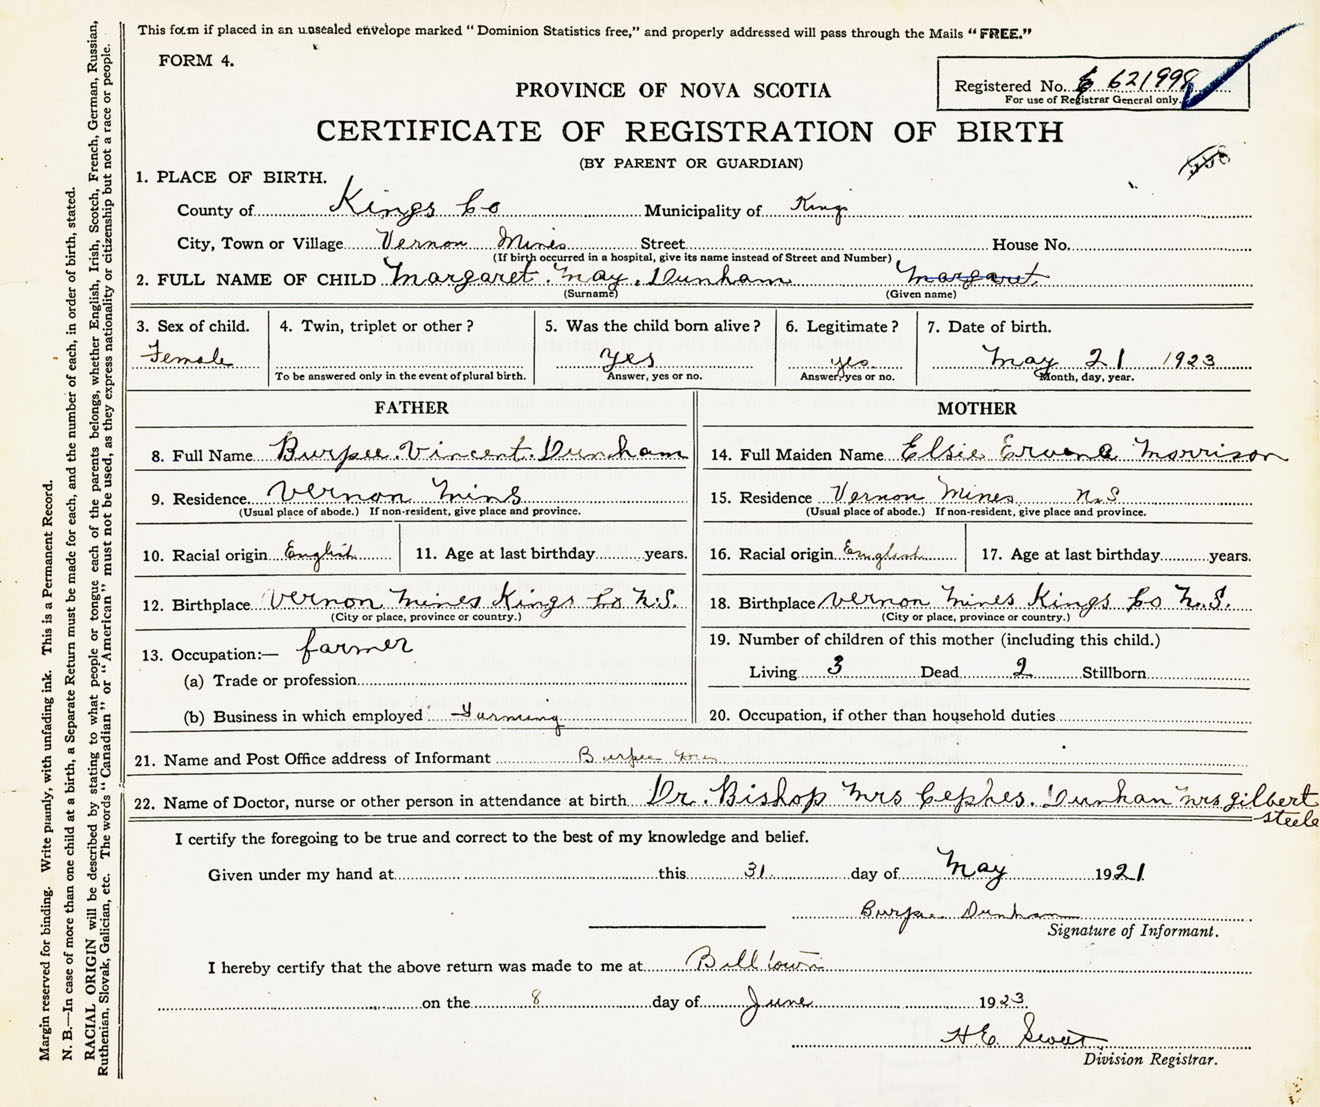 This form if placed in an unsealed envelope marked "Dominion Statistics free," and properly addressed will pass through the Mails "FREE."
FORM 4.
Registered No. 621998
For use of Registrar General only.
PROVINCE OF NOVA SCOTIA
CERTIFICATE OF REGISTRATION OF BIRTH
(BY PARENT OR GUARDIAN)
1. PLACE OF BIRTH.
County of Kings Co Municipality of Kings
City, Town or Village Vernon Mines Street House No.
(If birth occurred in a hospital, give its name instead of Street and Number)
2. FULL NAME OF CHILD Margaret May Dunham Margaret
(Surname) (Given name)
3. Sex of child. 4. Twin, triplet or other? 5. Was the child born alive? 6. Legitimate? 7. Date of birth.
Female yes yes May 21 1923
To be answered only in the event of plural birth. Answer, yes or no. Answer, yes or no. Month, day, year.
FATHER MOTHER
8. Full Name Burpee Vincent Dunham 14. Full Maiden Name Elsie Ervena Morrison
9. Residence Vernon Mins 15. Residence Vernon Mines N.S
(Usual place of abode.) If non-resident, give place and province. (Usual place of abode.) If non-resident, give place and province.
10. Racial origin English 11. Age at last birthday years. 16. Racial origin English 17. Age at last birthday years.
12. Birthplace Vernon Mines Kings Co N.S. 18. Birthplace Vernon Mines Kings Co N.S.
(City or place, province or country.) (City or place, province or country.)
13. Occupation:— farmer 19. Number of children of this mother (including this child.)
(a) Trade or profession Living 3 Dead 2 Stillborn
(b) Business in which employed Farming 20. Occupation, if other than household duties
21. Name and Post Office address of Informant Burpee
22. Name of Doctor, nurse or other person in attendance at birth Dr. Bishop Mrs Cephes. Dunham Mrs Gilbert
Steele
I certify the foregoing to be true and correct to the best of my knowledge and belief.
Given under my hand at this 31 day of May 1921
Burpee Dunham
Signature of Informant.
I hereby certify that the above return was made to me at Billtown
on the 8 day of June 1923
H.E. Sweet
Division Registrar.
Margin reserved for binding. Write plainly, with unfading ink. This is a Permanent Record.
N. B.—In case of more than one child at a birth, a Separate Return must be made for each, and the number of each, in order of birth, stated.
RACIAL ORIGIN will be described by stating to what people or tongue each of the parents belongs, whether English, Irish, Scotch, French, German, Russian,
Ruthenian, Slovak, Galician, etc. The words "Canadian" or "American" must not be used, as they express nationality or citizenship but not a race or people.